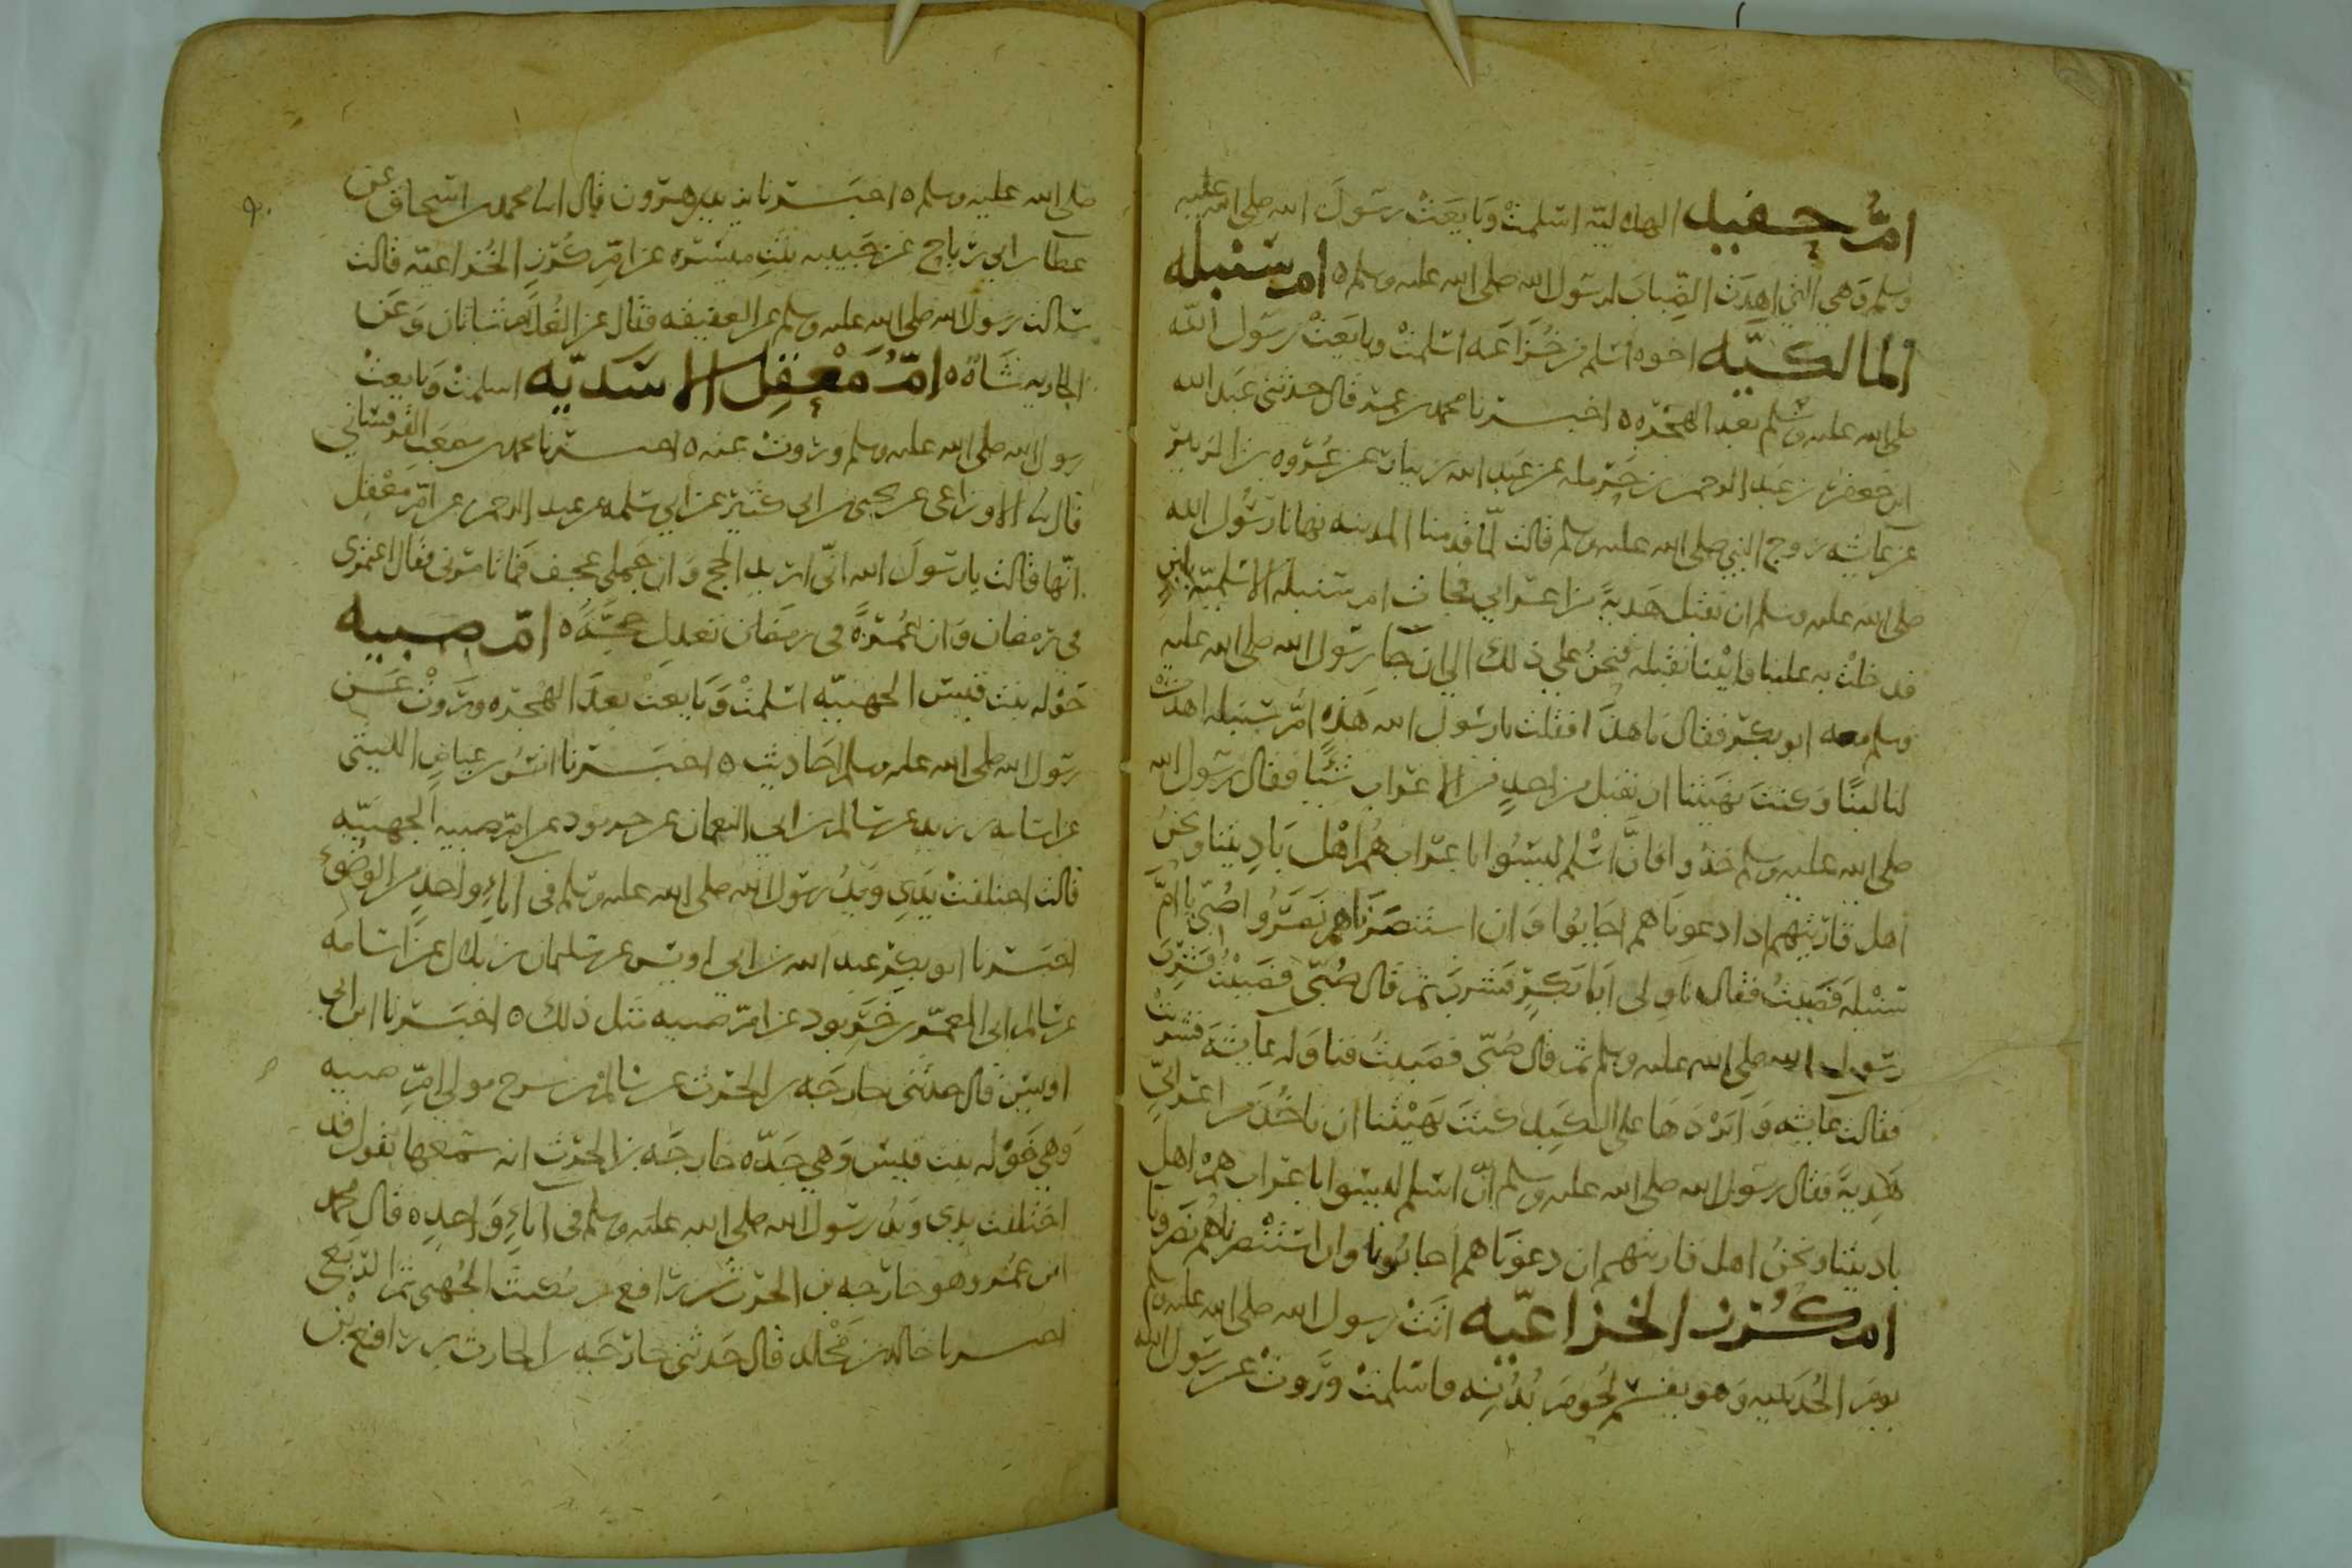 امّ حفيد الهلاليّه اسلمتْ وَبايعَتْ رسَولَ الله صلى الله عليه
وسلم وَهي التي اهدَت الضِّبابَ لرسَول الله صلى الله عليه وسلم ه ام سنبله
المالكيّه اخوه اسلم من خُزاعَه اسلمتْ وبايعَتْ رسَول الله
صلى الله عليه وسلم بعد الهجره ه اخبرنا محمد بن عمر قال حدثني عَبد الله
ابن جعفر بن عبد الرحمن بن حرمله عن عَبد الله بن نيار عن عُروه بن الزبير
عن عائشه زوج النبي صلى الله عليه وسلم قالت لمّا قدمنا المدينه نهانا رسُول الله
صلى الله عليه وسلم ان نقبل هَديةً من اعرابي فجات ام سنبله الاسلميّه بلبنٍ
فدخلتْ به علينا فابينا نقبله فنحنُ علي ذلك الي ان جا رسول الله صلى الله عليه
وسلم معه ابو بكر فقال ما هذا فقلت يا رسُول الله هَذه امّ سنبله اهدتْ
لنا لبنًا وكنتَ نهَيتنا ان نقبل من احدٍ من الاعراب شَيًا فقال رسول الله
صلى الله عليه وسلم خذوا فانّ اسْلم ليسُوا باعراب هم اهْل بَاديتنا ونحنُ
اهل قاريتهم اذا دعونَاهم اجَابُوا وَان استنصرَناهم نصَرُوا صُبّي يا امّ
سنبله فصَبيتُ فقال ناوِلي ابَا بكرٍ فشربَ ثم قال صُبّى فصَبيْتُ فشربَ
رسَول الله صلى الله عليه وسلم ثم قال صُبّى فصَبيتُ فناوَله عائشَة فشربتْ
فقالت عائشه وَابَرْدَهَا على الكبد كنتَ نهَيْتنا ان ناخُذَ من اعرابيّ
هَديةً فقال رسوَل الله صلى الله عليه وسلم انّ اسلم ليسَوا باعراب هم اهل
باديتنا ونحنُ اهل قاريتهم ان دعوَناهم اجابُونا وان استنصرناهُم نصَرونا
ام كرز الخزاعيّه اتَتْ رسول الله صلى الله عليه وسلم
يومَ الحُدَيبيه وَهو يقسم لحُومَ بُدْنِه فاسلمتْ ورَوتْ عن رسَول الله
صلى الله عليه وسلم ه اخبَرنا يزيد بن هرون قال انا محمد بن اسحاق عن
عطا بن ابي رباح عن حَبيبه بنتِ ميسَره عن امّ كُرزٍ الخُزاعيّه قالت
سَالت رسَول الله صلى الله عليه وسلم عن العقيقه فقال عن الغُلام شاتان وعَن
الجاريه شَاةٌ ه امّ مَعْقِل الاسَديّه اسلمتْ وَبايعتْ
رسول الله صلى الله عليه وسلم ورَوتْ عنه ه اخبرنا محمد بن مصعَب القرقسَاني
قال نا الاوزاعي عن يحيى بن ابي كثير عن ابي سَلمه بن عبد الرحمن عن امّ مَعْقِل
انّها قالت يا رسَولَ الله انّي اريد الحج وَان جَملي عجف فَما تامرني فقال اعتمرى
في رمضان وَان عُمْرَةً في رمضان تعدِل حجّةً ه امّ صبيه
خَوله بنت قيسٍ الجهنيّه اسلمتْ وَبَايعتْ بعدَ الهْجره وَروتْ عَن
رسول الله صلى الله عليه وسلم احَاديث ه اخبَرنا انسُ بن عياض الليثي
عن اسامه بن زيد عن سالم بن ابي النعمان عن خربوذ عن امّ صبيه الجهنيّه
قالت اختلفتْ يَدِي وَيَدُ رسول الله صلى الله عليه وسلم في اناءٍ واحدٍ من الوضوء
اخبَرنا ابو بكر بن عبد الله بن ابي اويس عن سليمان بن بلال عن اسَامَه
عن سَالم ابي المعمر بن خرّبوذ عن امّ صبيه مثل ذلك ه اخبَرنا ابن ابي
اويس قال حدثني خارجَه بن الحرث عن سالم بن سرح مولى امّ صبيه
وَهي خَوْله بنت قيس وَهي جَدّه خارجَه بن الحرث انه سمعها تقول قد
اختلفت يدي وَيدُ رسول الله صلى الله عليه وسلم في اناءٍ وَاحدٍ ه قال محمد
ابن عُمر وهو خارجه بن الحرث بن رافع بن مكيث الجُهني ثم الربعي
اخبرنا خالد بن مخْلد قال حَدثني خارجَه بن الحارث بن رافع بن